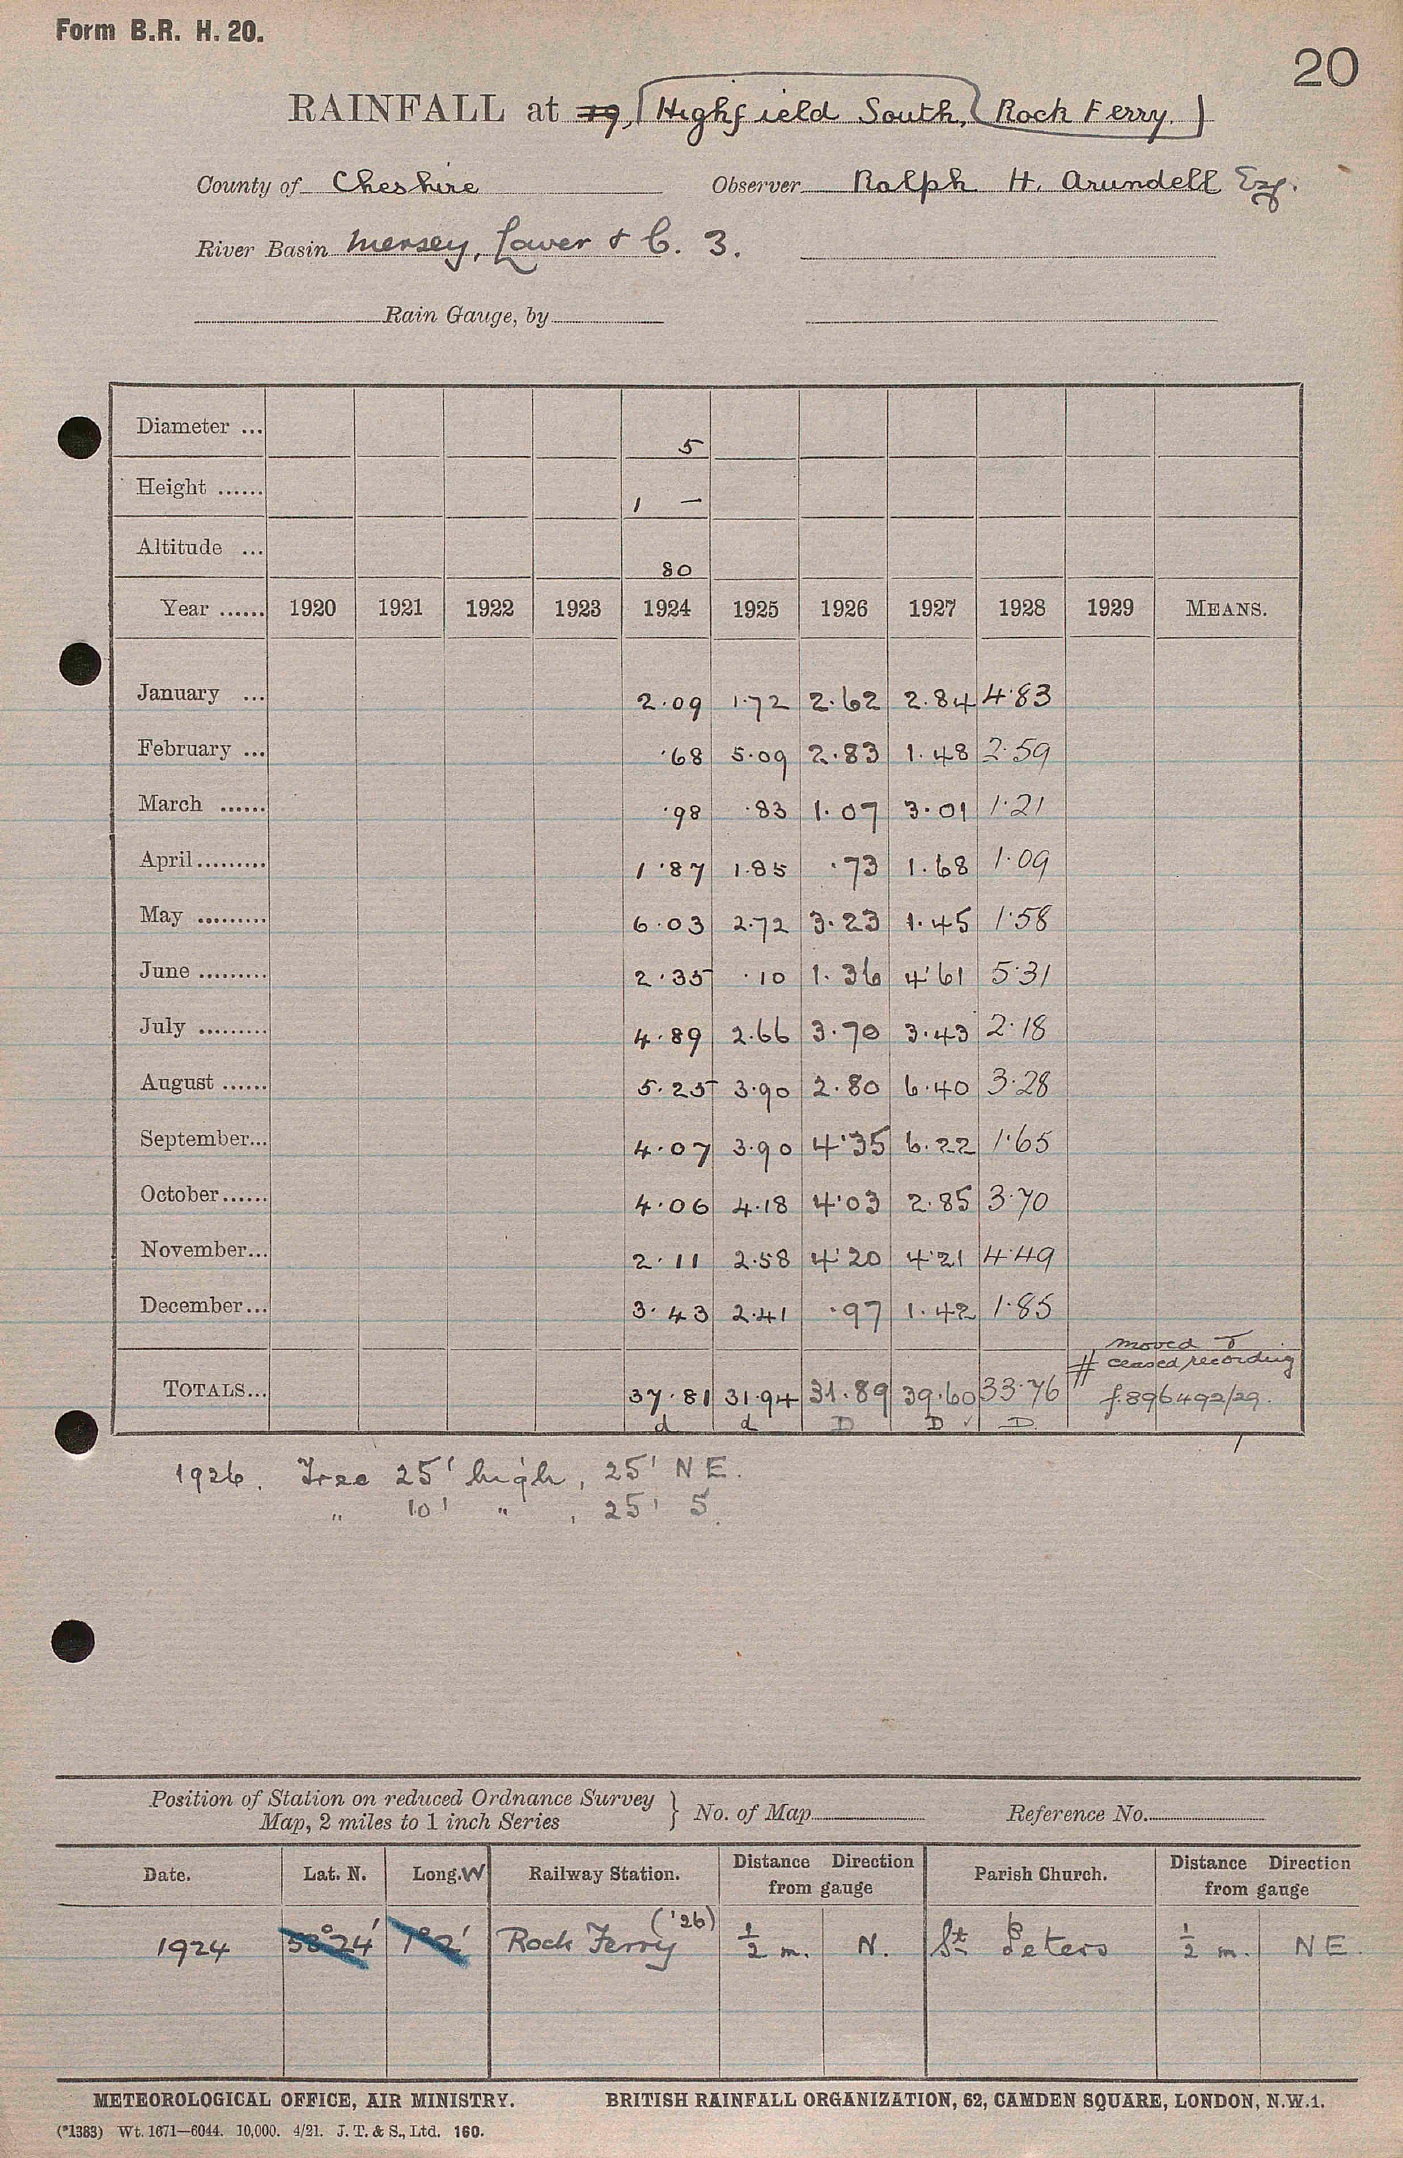 Form B.R. H. 20.
20
RAINFALL at 19, Highfield South, Rock Ferry.
County of Cheshire Observer Ralph H. Arundell Esq.
River Basin Mersey, Lower & C. 3.
Rain Gauge, by
Diameter ... 5
Height ...... 1 —
Altitude ... 80
Year ...... 1920 1921 1922 1923 1924 1925 1926 1927 1928 1929 MEANS.
January ... 2.09 1.72 2.62 2.84 4.83
February ... .68 5.09 2.83 1.48 2.59
March ...... .98 .83 1.07 3.01 1.21
April ......... 1.87 1.85 .73 1.68 1.09
May ......... 6.03 2.72 3.23 1.45 1.58
June ......... 2.35 .10 1.36 4.61 5.31
July ......... 4.89 2.66 3.70 3.43 2.18
August ...... 5.25 3.90 2.80 6.40 3.28
September... 4.07 3.90 4.35 6.22 1.65
October...... 4.06 4.18 4.03 2.85 3.70
November... 2.11 2.58 4.20 4.21 4.49
December... 3.43 2.41 .97 1.42 1.85
moved &
# ceased recording
TOTALS... 37.81 31.94 31.89 39.60 33.76 f.896492/29.
d d D D ✓ D
1926. Tree 25' high, 25' NE.
" 10' " , 25' S.
Position of Station on reduced Ordnance Survey
Map, 2 miles to 1 inch Series } No. of Map Reference No.
Date. Lat. N. Long. W Railway Station. Distance Direction from gauge Parish Church. Distance Direction from gauge
1924 53°24' 1°2' Rock Ferry ('26) ½ m. N. St Peters ½ m. NE
METEOROLOGICAL OFFICE, AIR MINISTRY. BRITISH RAINFALL ORGANIZATION, 62, CAMDEN SQUARE, LONDON, N.W.1.
(*1383) Wt. 1671—6044. 10,000. 4/21. J. T. & S., Ltd. 160.